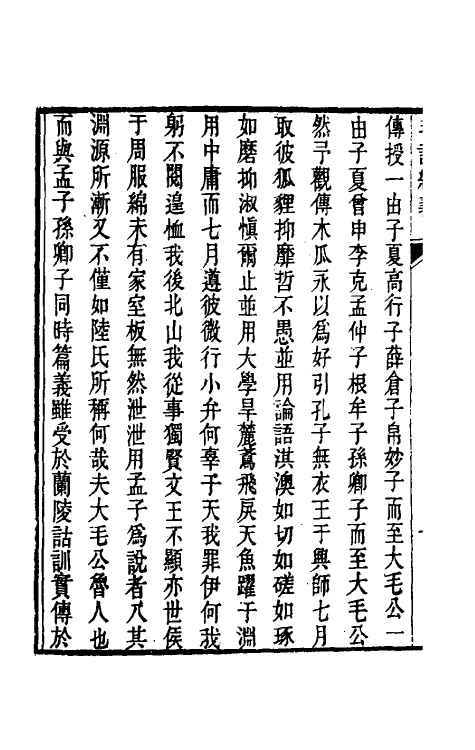 傳授一由子夏高行子薛倉子帛妙子而至大毛公一
由子夏曾申李克孟仲子根牟子孫卿子而至大毛公
然予觀傳木瓜永以爲好引孔子無衣王于興師七月
取彼狐貍抑靡哲不愚並用論語淇澳如切如磋如琢
如磨抑淑愼爾止並用大學旱麓鳶飛戾天魚躍于淵
用中庸而七月遵彼微行小弁何辜于天我罪伊何我
躬不閱遑恤我後北山我從事獨賢文王不顯亦世侯
于周服綿未有家室板無然泄泄用孟子爲說者八其
淵源所漸又不僅如陸氏所稱何哉夫大毛公魯人也
而與孟子孫卿子同時篇義雖受於蘭陵詁訓實傳於